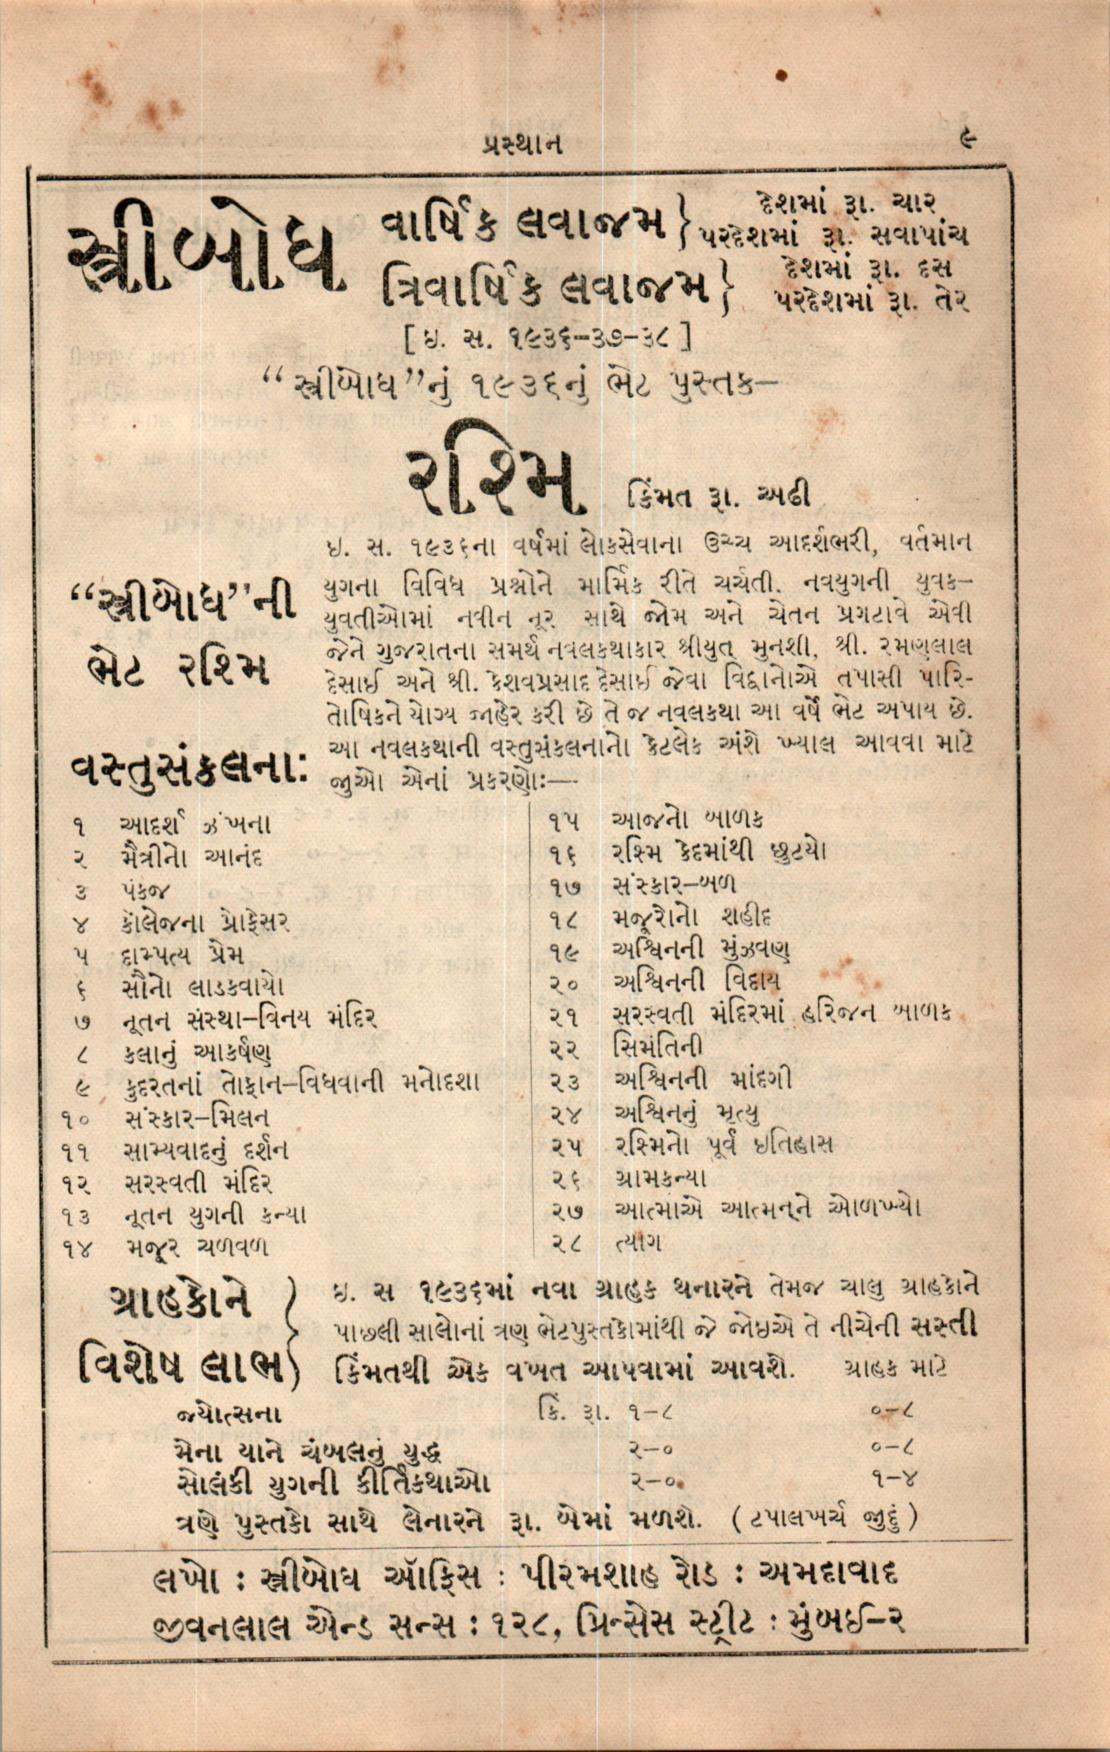 પ્રસ્થાન ૯
સ્ત્રીબોધ
વાર્ષિક લવાજમ } દેશમાં રૂા. ચાર
પરદેશમાં રૂા. સવાપાંચ
ત્રિવાર્ષિક લવાજમ } દેશમાં રૂા. દસ
પરદેશમાં રૂા. તેર
[ ઇ. સ. ૧૯૩૬-૩૭-૩૮ ]
“સ્ત્રીબોધ”નું ૧૯૩૬નું ભેટ પુસ્તક—
રશ્મિ કિંમત રૂા. અઢી
“સ્ત્રીબોધ”ની
ભેટ રશ્મિ
ઇ. સ. ૧૯૩૬ના વર્ષમાં લોકસેવાના ઉચ્ચ આદર્શભરી, વર્તમાન
યુગના વિવિધ પ્રશ્નોને માર્મિક રીતે ચર્ચતી. નવયુગની યુવક-
યુવતીઓમાં નવીન નૂર સાથે જોમ અને ચેતન પ્રગટાવે એવી
જેને ગુજરાતના સમર્થ નવલકથાકાર શ્રીયુત્ મુનશી, શ્રી. રમણલાલ
દેસાઈ અને શ્રી. કેશવપ્રસાદ દેસાઈ જેવા વિદ્વાનોએ તપાસી પારિ-
તોષિકને યોગ્ય જાહેર કરી છે તે જ નવલકથા આ વર્ષે ભેટ અપાય છે.
વસ્તુસંકલના:
આ નવલકથાની વસ્તુસંકલનાનો કેટલેક અંશે ખ્યાલ આવવા માટે
જુઓ એનાં પ્રકરણો:—
૧ આદર્શ ઝંખના
૨ મૈત્રીનો આનંદ
૩ પંકજ
૪ કૉલેજના પ્રોફેસર
૫ દામ્પત્ય પ્રેમ
૬ સૌનો લાડકવાયો
૭ નૂતન સંસ્થા-વિનય મંદિર
૮ કલાનું આકર્ષણ
૯ કુદરતનાં તોફાન-વિધવાની મનોદશા
૧૦ સંસ્કાર-મિલન
૧૧ સામ્યવાદનું દર્શન
૧૨ સરસ્વતી મંદિર
૧૩ નૂતન યુગની કન્યા
૧૪ મજૂર ચળવળ
૧૫ આજનો બાળક
૧૬ રશ્મિ કેદમાંથી છુટયો
૧૭ સંસ્કાર-બળ
૧૮ મજૂરોનો શહીદ
૧૯ અશ્વિનની મુંઝવણ
૨૦ અશ્વિનની વિદાય
૨૧ સરસ્વતી મંદિરમાં હરિજન બાળક
૨૨ સિમંતિની
૨૩ અશ્વિનની માંદગી
૨૪ અશ્વિનનું મૃત્યુ
૨૫ રશ્મિનો પૂર્વ ઇતિહાસ
૨૬ ગ્રામકન્યા
૨૭ આત્માએ આત્મન્‌ને ઓળખ્યો
૨૮ ત્યાગ
ગ્રાહકોને
વિશેષ લાભ }
ઇ. સ ૧૯૩૬માં નવા ગ્રાહક થનારને તેમજ ચાલુ ગ્રાહકોને
પાછલી સાલોનાં ત્રણ ભેટપુસ્તકોમાંથી જે જોઇએ તે નીચેની સસ્તી
કિંમતથી એક વખત આપવામાં આવશે. ગ્રાહક માટે
જ્યોત્સના કિં. રૂા. ૧-૮ ૦-૮
મેના યાને ચંબલનું યુદ્ધ ૨-૦ ૦-૮
સોલંકી યુગની કીર્તિકથાઓ ૨-૦ ૧-૪
ત્રણે પુસ્તકો સાથે લેનારને રૂા. બેમાં મળશે. (ટપાલખર્ચ જીદું)
લખો : સ્ત્રીબોધ ઑફિસ : પીરમશાહ રોડ : અમદાવાદ
જીવનલાલ એન્ડ સન્સ : ૧૨૮, પ્રિન્સેસ સ્ટ્રીટ : મુંબઈ-૨